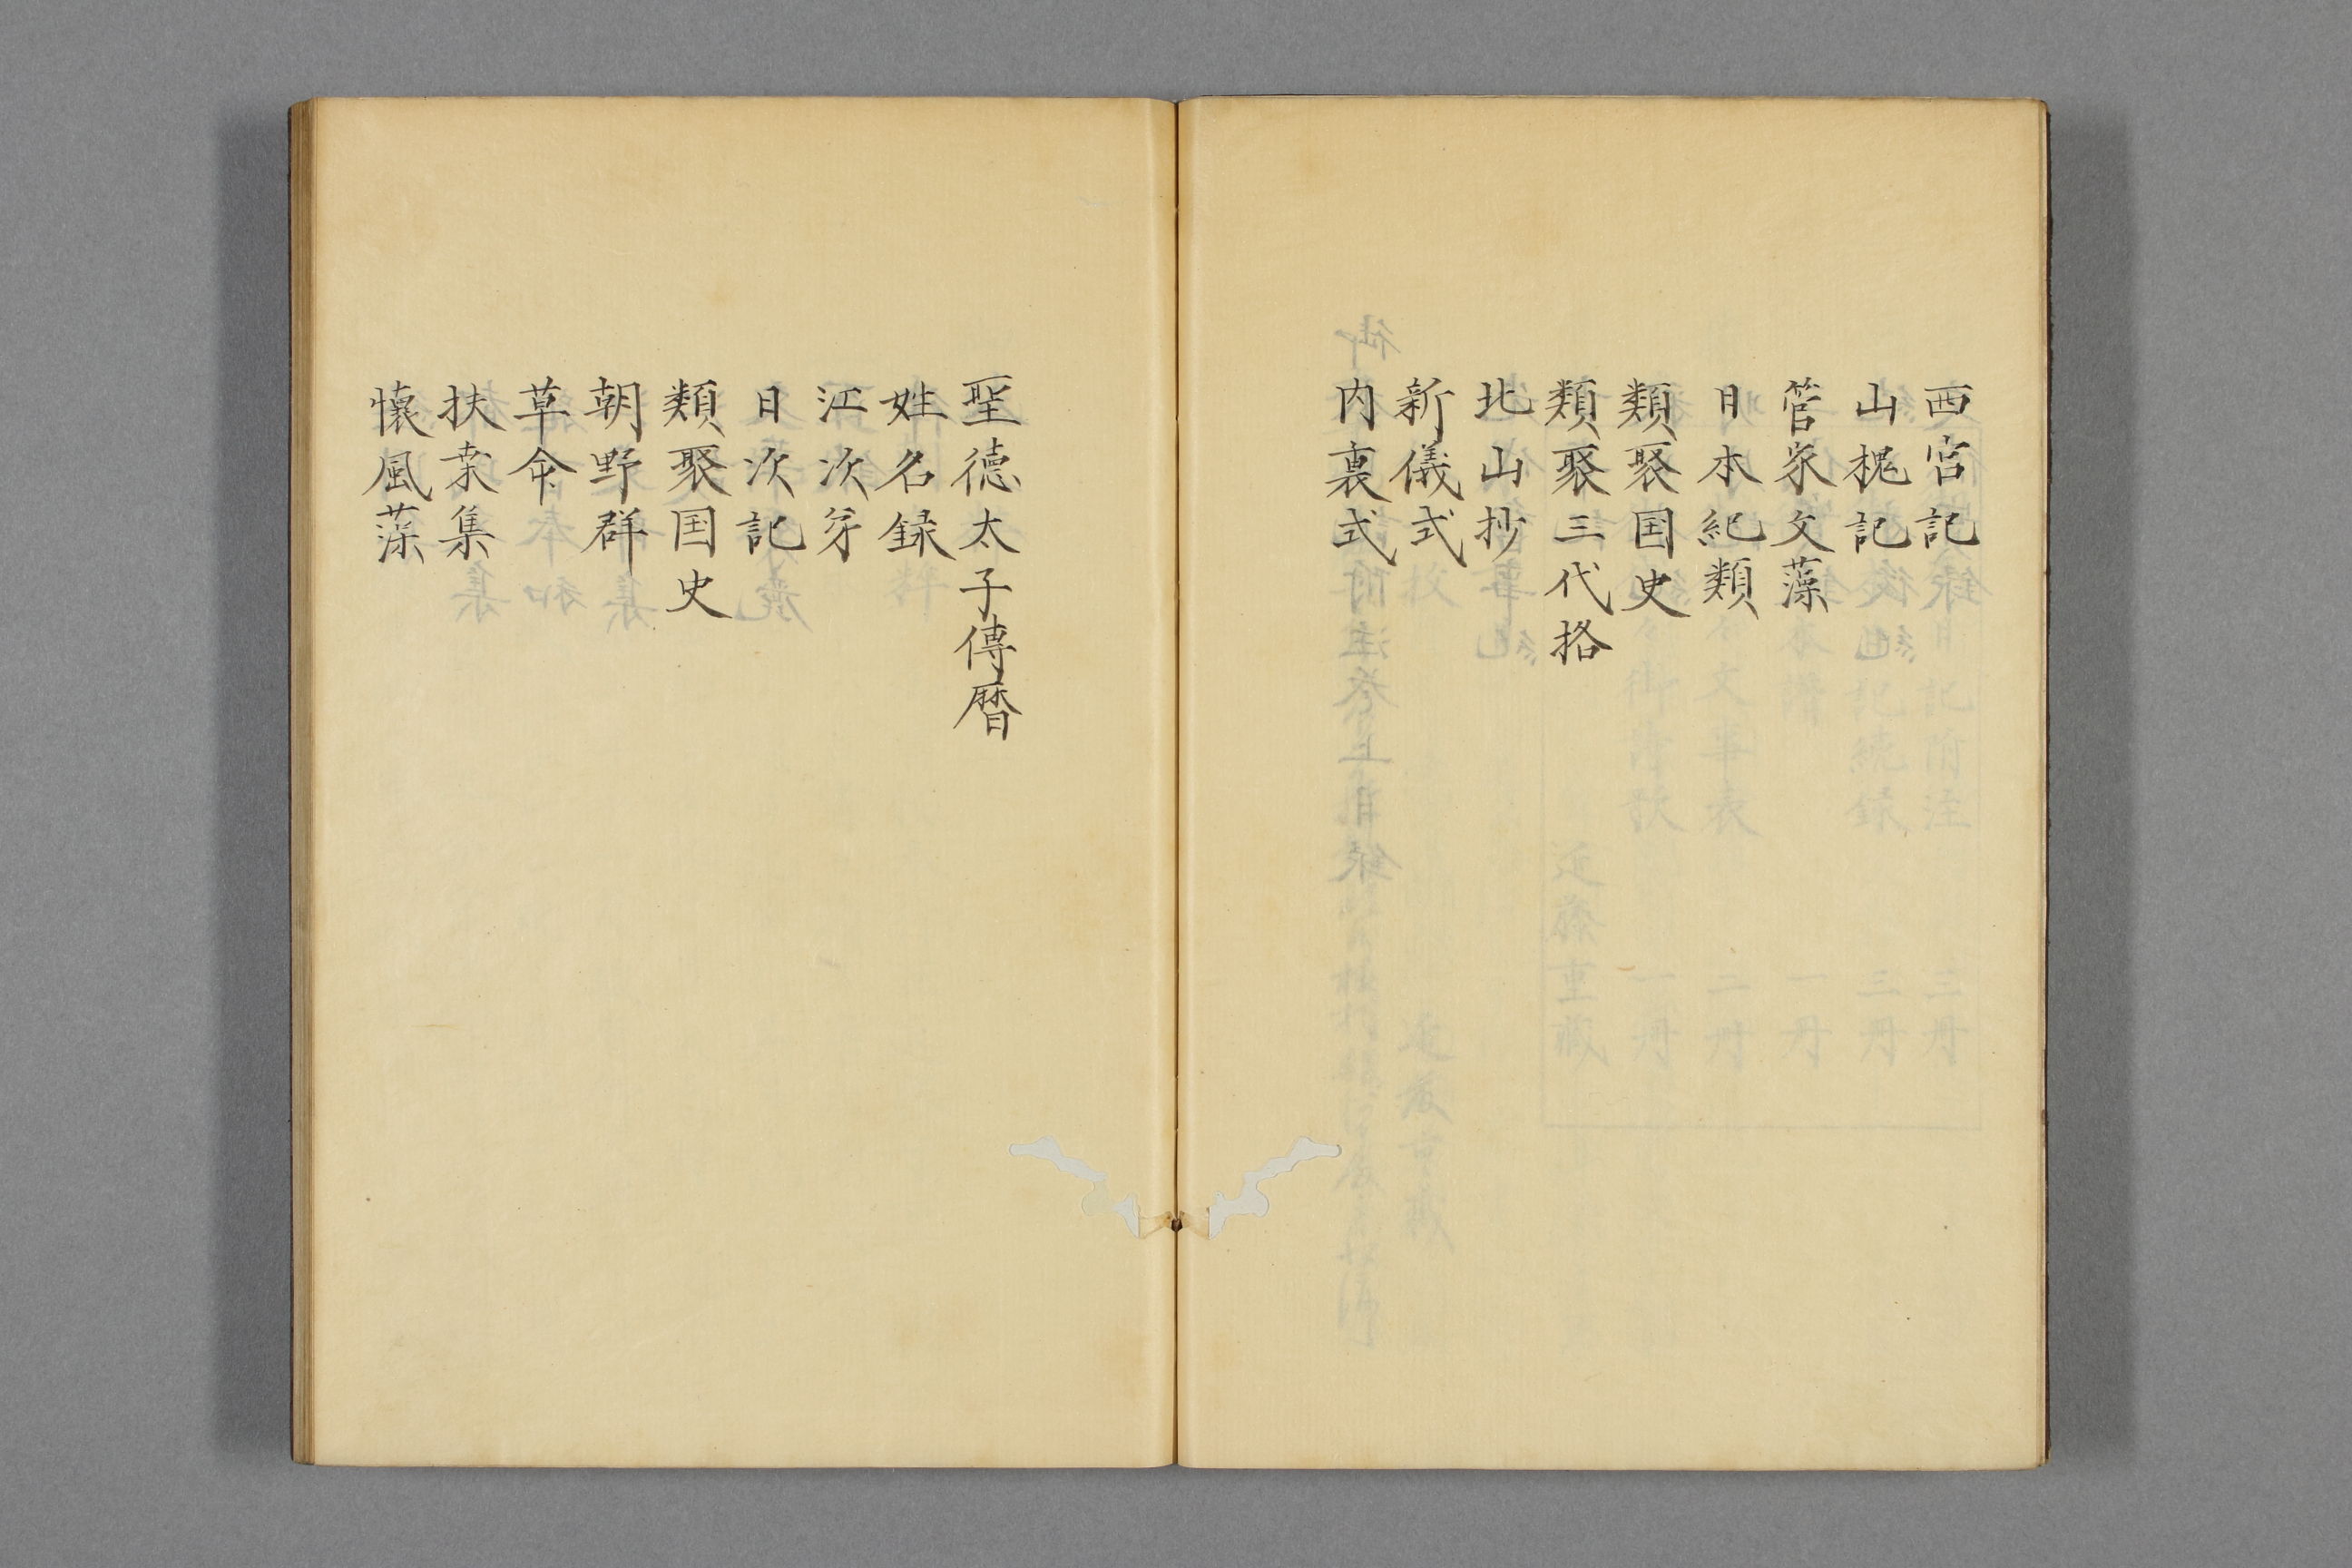 西宮記
山槐記
管家文藻
日本紀類
類聚国史
類聚三代格
北山抄
新儀式
内裏式
聖徳太子傳暦
姓名録
江次㐧
日次記
類聚国史
朝野群
草命
扶桒集
懐風藻